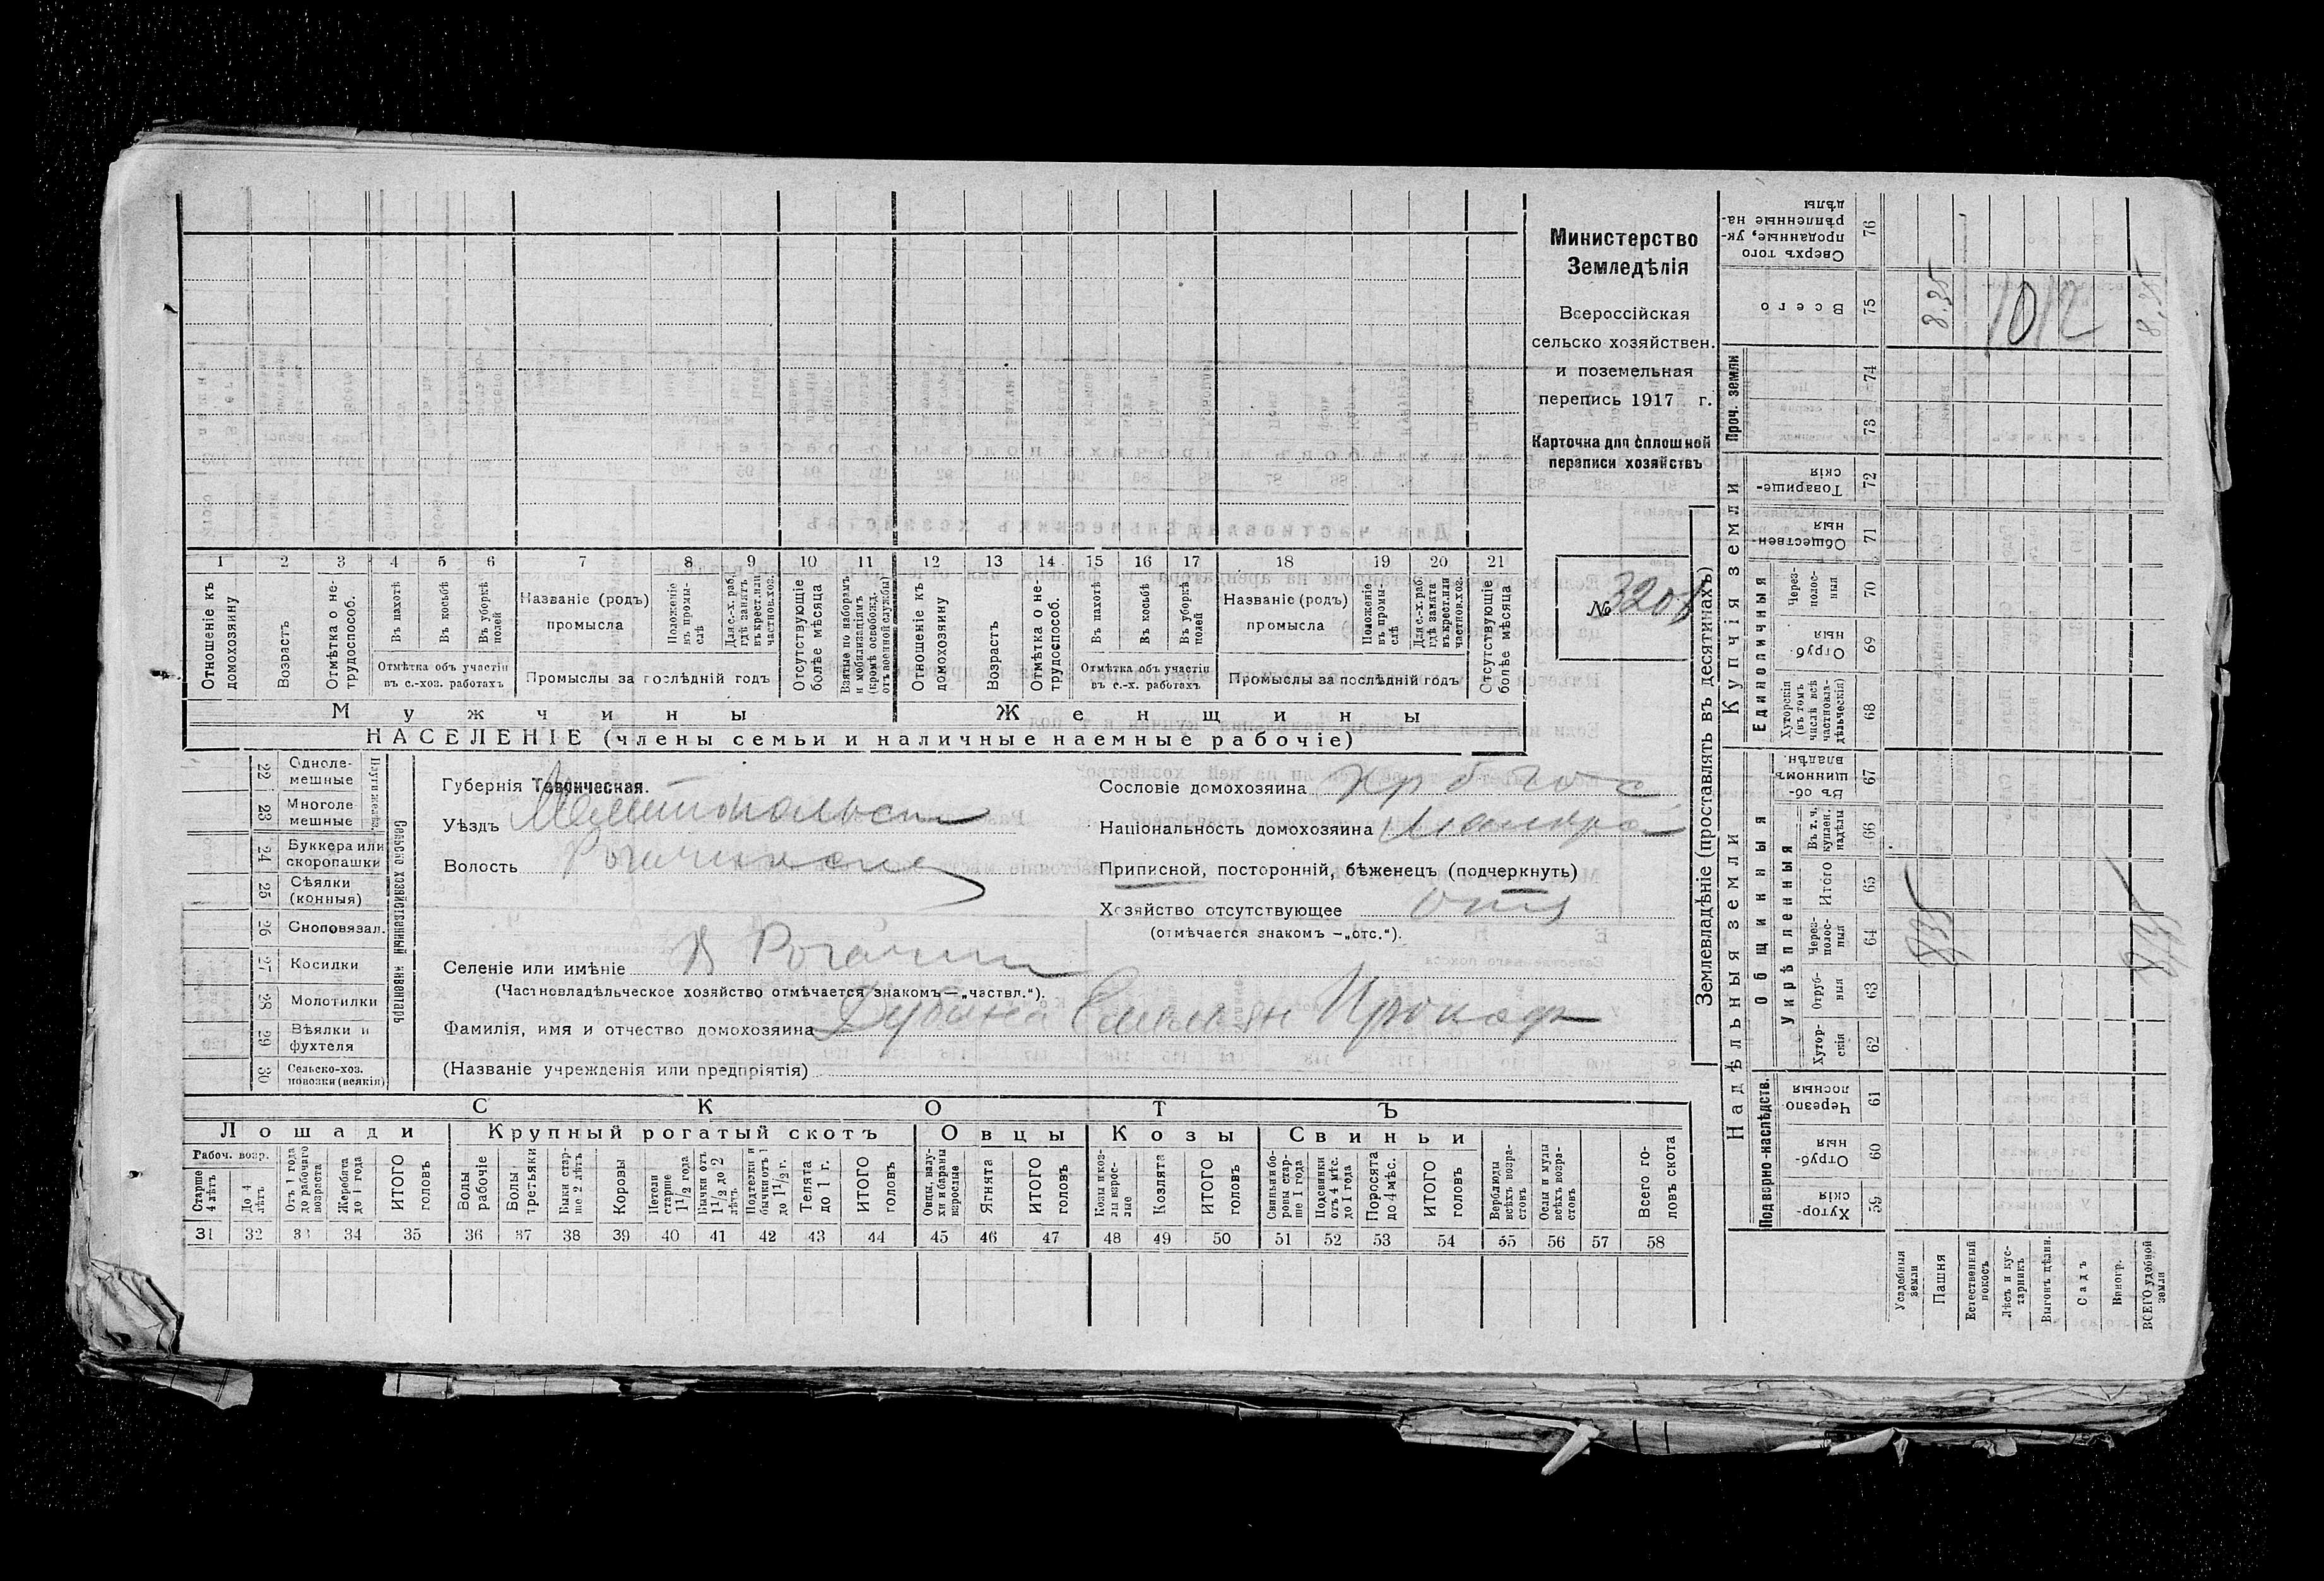 1 2 3 4 5 6 7 8 9 10 11 12 13 14 15 16 17 18 19 20 21
Отношеніе къ домохозяину
Возрастъ
Отмѣтка о не-трудоспособ.
Въ пахотѣ
Въ косьбѣ
Въ уборкѣ полей
Отмѣтка объ участіи
въ с.-хоз. работахъ
Названіе (родъ)
промысла
Положеніе въ промы-слѣ
Для с.-х. раб. гдѣ занятъ въ крест. или частнов. хоз.
Промыслы за послѣдній годъ
Отсутствующіе болѣе мѣсяца
Взятые по наборамъ и мобилизаціямъ (кромѣ освобожд. отъ военной службы)
Отношеніе къ домохозяину
Возрастъ
Отмѣтка о не-трудоспособ.
Въ пахотѣ
Въ косьбѣ
Въ уборкѣ полей
Отмѣтка объ участіи
въ с.-х. работахъ
Названіе (родъ)
промысла
Положеніе въ промы-слѣ
Для с.-х. раб. гдѣ занята въ крест. или частнов. хоз.
Промыслы за послѣдній годъ
Отсутствующіе болѣе мѣсяца
Мужчины Женщины
НАСЕЛЕНІЕ (члены семьи и наличные наемные рабочіе)
Министерство
Земледѣлія
Всероссійская
сельско хозяйствен.
и поземельная
перепись 1917 г.
Карточка для сплошной
переписи хозяйствъ
№ 3204
Сельско хозяйственный инвентарь
Плуги желѣз.
22 Одноле-мешные
23 Многоле-мешные
24 Буккера или скоропашки
25 Сѣялки (конныя)
26 Сноповязал.
27 Косилки
28 Молотилки
29 Вѣялки и фухтеля
30 Сельско-хоз. повозки (всякія)
Губернія Таврическая.
Уѣздъ Мелитопольск
Волость Рогачинск
Селеніе или имѣніе В Рогачик
(Частновладѣльческое хозяйство отмѣчается знакомъ—„частвл.“).
Фамилія, имя и отчество домохозяина Дубина Емельян Прокоф
(Названіе учрежденія или предпріятія)
Сословіе домохозяина
Національность домохозяина Малор
Приписной, посторонній, бѣженецъ (подчеркнуть)
Хозяйство отсутствующее отс
(отмѣчается знакомъ —„отс.“).
СКОТЪ
Лошади Крупный рогатый скотъ Овцы Козы Свиньи
Рабоч. возр.
Старше 4 лѣтъ
До 4 лѣтъ
Отъ 1 года до рабочаго возраста
Жеребята до 1 года
ИТОГО головъ
Волы рабочіе
Волы третьяки
Быки стар-ше 2 лѣтъ
Коровы
Нетели старше 1 1/2 года
Бычки отъ 1 1/2 до 2 лѣтъ
Подтелки и бычки отъ 1 до 1 1/2 г.
Телята до 1 г.
ИТОГО головъ
Овцы, валу-хи и бараны взрослые
Ягнята
ИТОГО головъ
Козы и коз-лы взрос-лые
Козлята
ИТОГО головъ
Свиньи и бо-ровы стар-ше 1 года
Подсвинки отъ 4 мѣс. до 1 года
Поросята до 4 мѣс.
ИТОГО головъ
Верблюды всѣхъ возра-стовъ
Ослы и мулы всѣхъ возра-стовъ
Всего го-ловъ скота
31 32 33 34 35 36 37 38 39 40 41 42 43 44 45 46 47 48 49 50 51 52 53 54 55 56 57 58
Землевладѣніе (проставлять въ десятинахъ)
Купчія земли
Надѣльныя земли
Сверхъ того проданные, ук-рѣпленные на-дѣлы 76
Всего 75 8.35 1012 8,35
Проч. земли 74 73
Товарище-скія 72
Обществен-ныя 71
Единоличныя
Через-полос-ныя 70
Отруб-ныя 69
Хуторскія (въ томъ числѣ всѣ частновла-дѣльческія) 68
Общинныя
Въ об-щинномъ владѣн. 67
Укрѣпленныя
Въ т. ч. куплен. надѣлы 66
Итого 65
Через-полос-ныя 64 8,35 8,35
Отруб-ныя 63
Хутор-скія 62
Подворно-наслѣдств.
Черезпо-лосныя 61
Отруб-ныя 60
Хутор-скія 59
Усадебныя земли
Пашня
Естественный покосъ
Лѣсъ и кус-тарникъ
Выгонъ цѣлин.
Садъ
Виногр.
ВСЕГО удобной земли